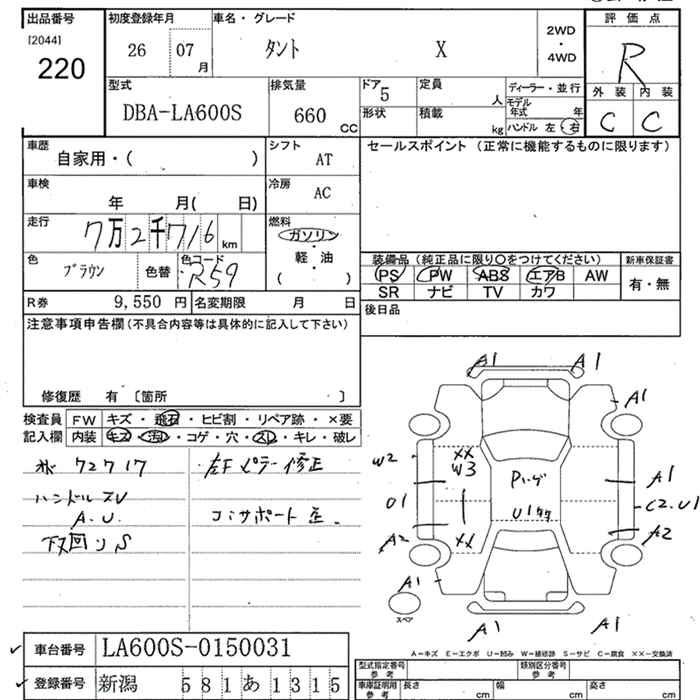 出品番号 初度登録年月 車名・グレード 評価点
[2044]
220 26 07月 タント X 2WD・4WD R
型式 排気量 ドア 定員 ディーラー・並行 外装 内装
DBA-LA600S 660 CC 5 人 モデル年式 年 C C
形状 積載 kg ハンドル 左・右
車歴 シフト セールスポイント (正常に機能するものに限ります)
自家用・( ) AT
車検 冷房
年 月( 日) AC
走行 燃料
7万2千716 km ガソリン
軽・油
( )
装備品 (純正品に限り○をつけてください) 新車保証書
色 色替 色コード PS PW ABS エアB AW 有・無
ブラウン R59 SR ナビ TV カワ
R券 9,550 円 名変期限 月 日 後日品
注意事項申告欄 (不具合内容等は具体的に記入して下さい)
修復歴 有 〔箇所 〕
検査員記入欄 FW キズ・飛石・ヒビ割・リペア跡・×要
内装 キズ・汚レ・コゲ・穴・スレ・キレ・破レ
72717 左Fピラー修正
ハンドルスレ
A.U. コ:サポート歪
下回りS
A1 A1
A1
W2 XX
W3 Pハゲ A1
O1 U1タタ C2.U1
A2 XX A2
A1
スペア
A1 A1
A－キズ E－エクボ U－凹み W－補修跡 S－サビ C－腐食 ××－交換済
車台番号 LA600S-0150031
登録番号 新潟 581あ1315
型式指定番号 参考 類別区分番号 参考
車庫証明用 参考 長さ cm 幅 cm 高さ cm